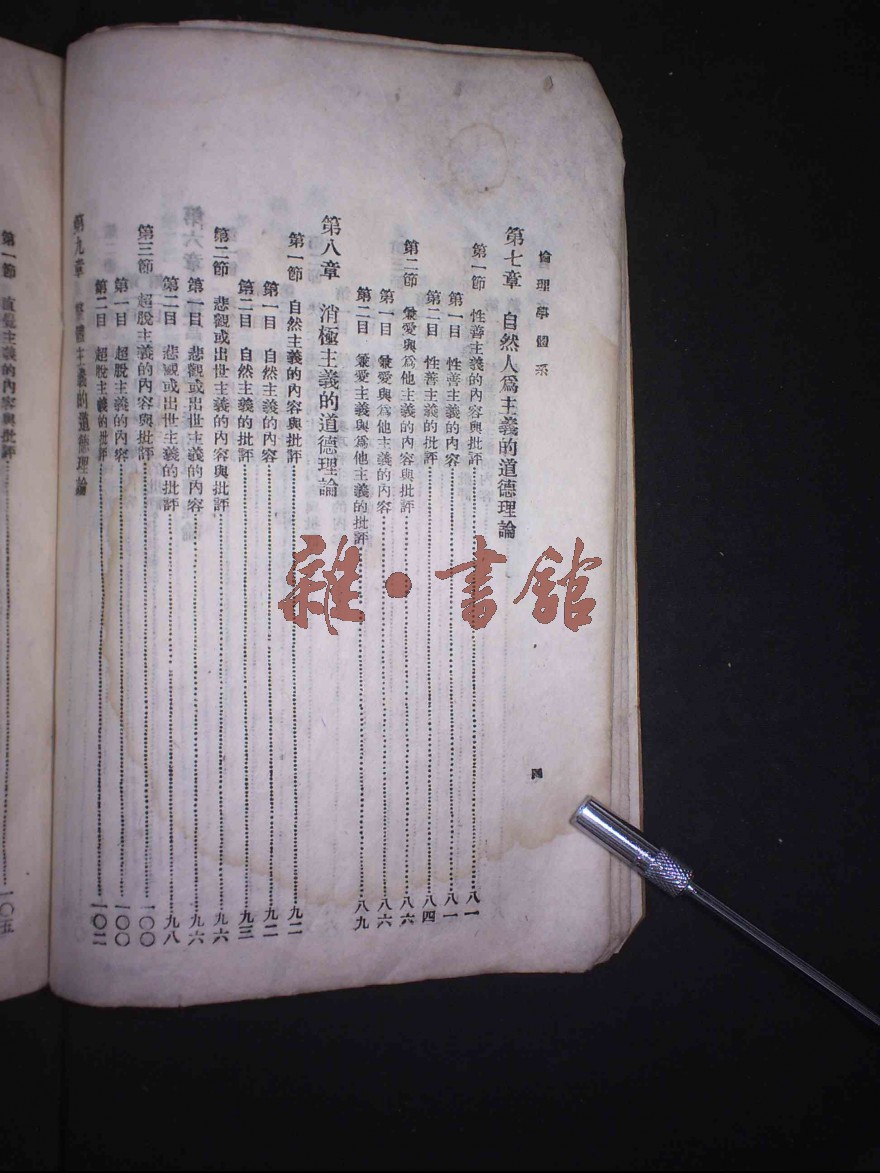 倫理學體系
四
第七章 自然人爲主義的道德理論
第一節 性善主義的內容與批評……八一
第一目 性善主義的內容……八一
第二目 性善主義的批評……八四
第二節 兼愛與爲他主義的內容與批評……八六
第一目 兼愛與爲他主義的內容……八六
第二目 兼愛主義與爲他主義的批評……八九
第八章 消極主義的道德理論
第一節 自然主義的內容與批評……九二
第一目 自然主義的內容……九二
第二目 自然主義的批評……九三
第二節 悲觀或出世主義的內容與批評……九六
第一目 悲觀或出世主義的內容……九六
第二目 悲觀或出世主義的批評……九八
第三節 超脫主義的內容與批評……一〇〇
第一目 超脫主義的內容……一〇〇
第二目 超脫主義的批評……一〇二
第九章 主義的道德理論
第一節 直覺主義的內容與批評……一〇五
雜·書館